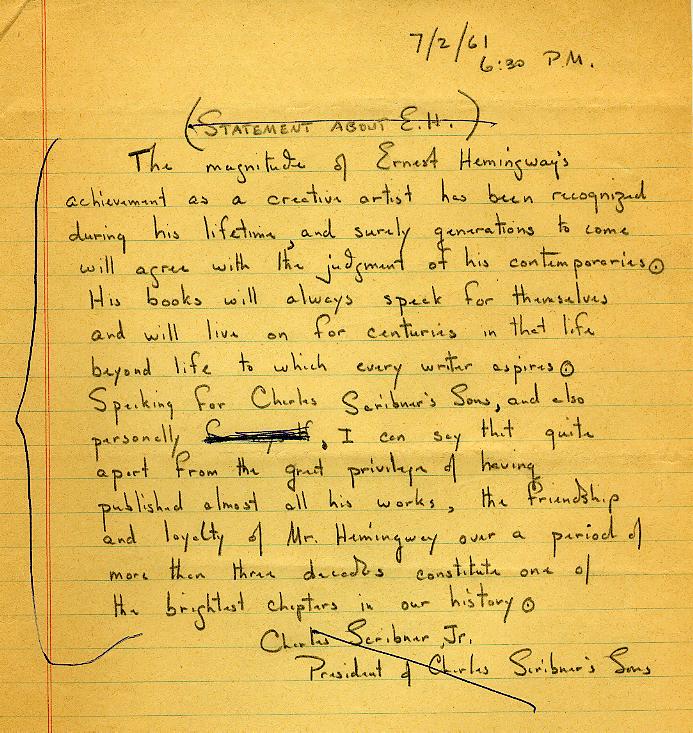 7/2/61
6:30 P.M.
(STATEMENT ABOUT E.H.)
The magnitude of Ernest Hemingway's
achievement as a creative artist has been recognized
during his lifetime, and surely generations to come
will agree with the judgment of his contemporaries.
His books will always speak for themselves
and will live on for centuries in that life
beyond life to which every writer aspires.
Speaking for Charles Scribner's Sons, and also
personally, I can say that quite
apart from the great privilege of having
published almost all his works, the friendship
and loyalty of Mr. Hemingway over a period of
more than three decades constitute one of
the brightest chapters in our history.
Charles Scribner, Jr.
President of Charles Scribner's Sons